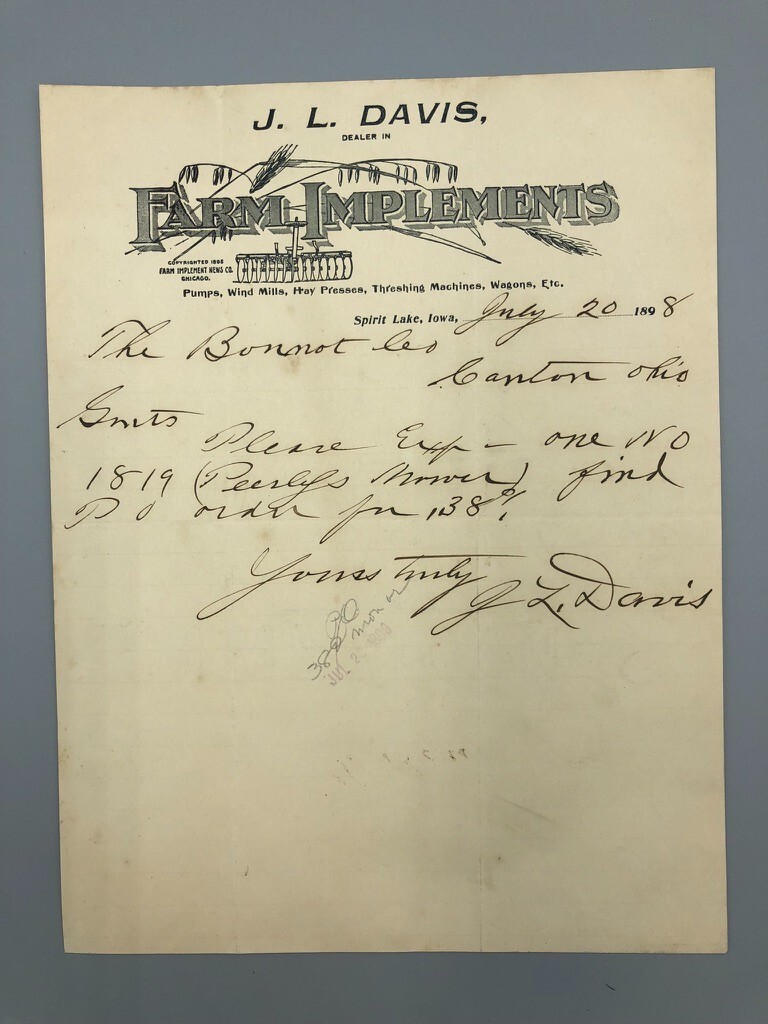 J. L. DAVIS,
DEALER IN
FARM IMPLEMENTS
COPYRIGHTED 1895
FARM IMPLEMENT NEWS CO.
CHICAGO.
Pumps, Wind Mills, Hay Presses, Threshing Machines, Wagons, Etc.
Spirit Lake, Iowa, July 20 1898
The Bonnot Co
Canton Ohio
Gents
Please Exp - one NO
1819 (Peerlys Mower) find
P O order for
Yours truly
J L. Davis